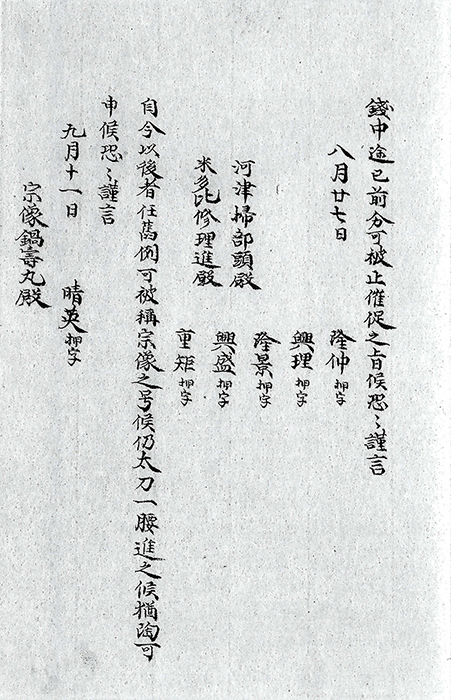 錢中途已前分可被止催促之旨候恐々謹言
八月廿七日 隆仲押字
興理押字
隆景押字
興盛押字
重矩押字
河津掃部頭殿
米多比修理進殿
自今以後者任舊例可被稱宗像之号候仍太刀一腰進之候猶陶可
申候恐々謹言
九月十一日 晴英押字
宗像鍋壽丸殿